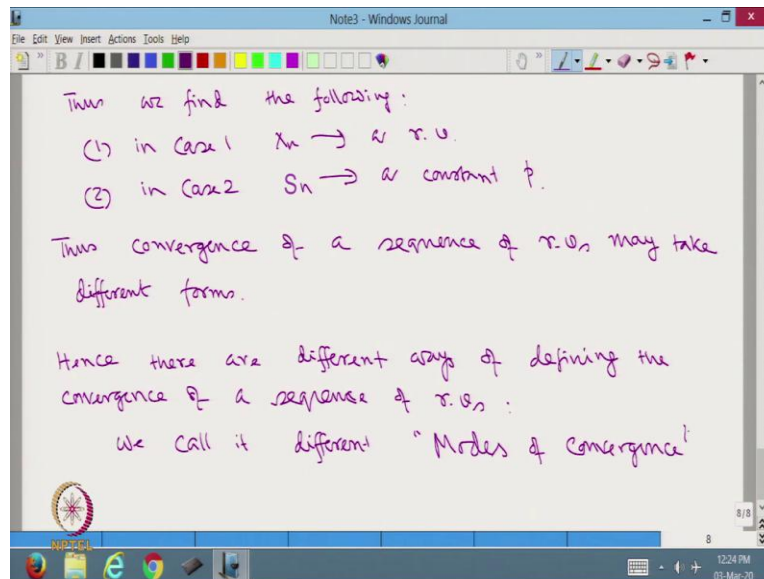 Note3 - Windows Journal
File Edit View Insert Actions Tools Help
Thus we find the following:
(1) in Case 1 Xn → a r.v.
(2) in Case 2 Sn → a constant p.
Thus convergence of a sequence of r.vs may take
different forms.
Hence there are different ways of defining the
convergence of a sequence of r.vs.
We call it different "Modes of convergence"
8/8
8
NPTEL
12:24 PM
03-Mar-20